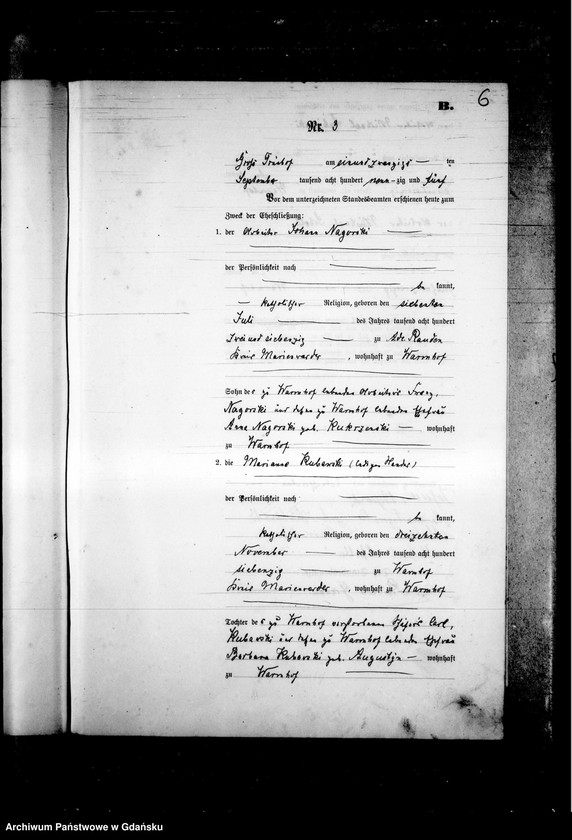 B. 6
Nr. 3
am einundzwanzigs — ten
September tausend acht hundert neun-zig und fünf
Vor dem unterzeichneten Standesbeamten erschienen heute zum
Zweck der Eheschließung:
1. der Arbeiter Johann Nagorski
der Persönlichkeit nach
be kannt,
katholischer Religion, geboren den siebenten
Juli des Jahres tausend acht hundert
zweiundsiebenzig zu Adl. Rauden
Kreis Marienwerder, wohnhaft zu Warmhof
Sohn des zu Warmhof lebenden Arbeiters Franz
Nagorski und dessen zu Warmhof lebenden Ehefrau
Anna Nagorski geb. — wohnhaft
zu Warmhof
2. die Marianna Kubarski (ledigen Standes)
der Persönlichkeit nach
be kannt,
katholischer Religion, geboren den dreizehnten
November des Jahres tausend acht hundert
siebenzig zu Warmhof
Kreis Marienwerder, wohnhaft zu Warmhof
Tochter des zu Warmhof verstorbenen Carl
Kubarski und dessen zu Warmhof lebenden Ehefrau
Barbara Kubarski geb. Augustyn — wohnhaft
zu Warmhof
Archiwum Państwowe w Gdańsku